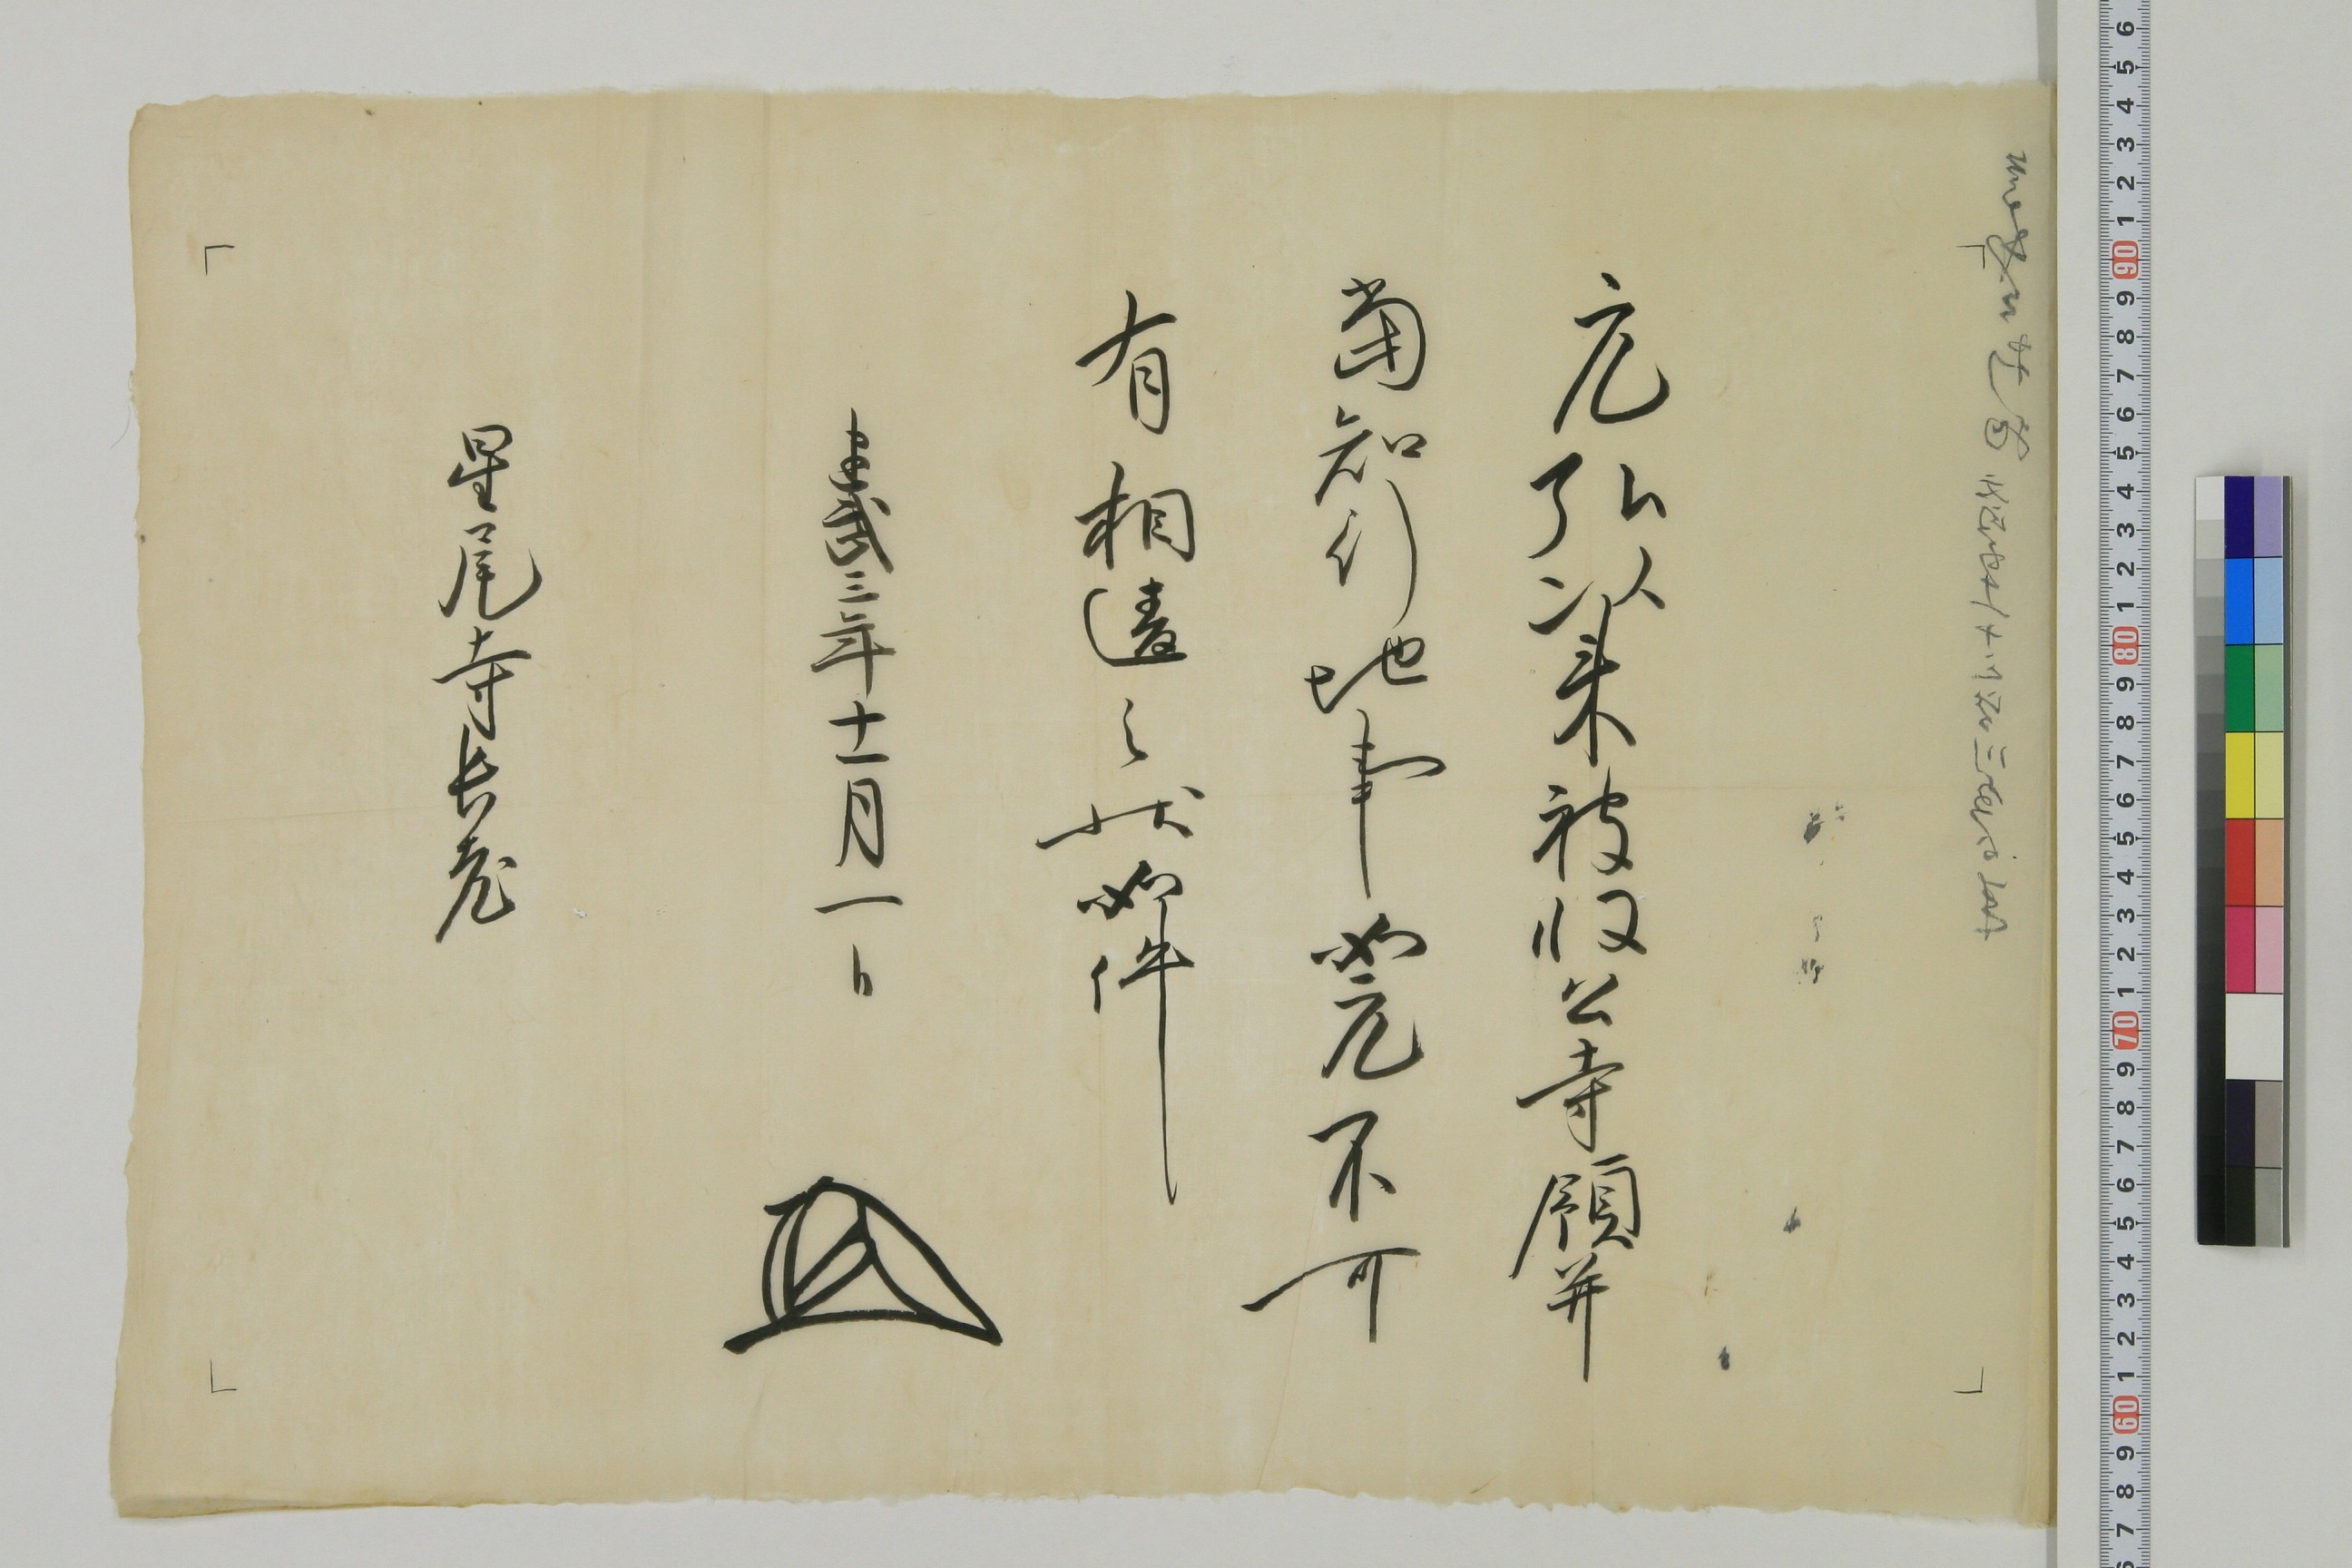 元弘以来被收公寺領并
當知行地事如元不可
有相違之状如件
建武三年十一月一日
星尾寺長老